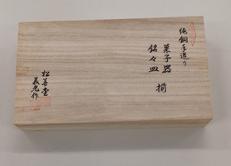 純銅手造り
菓子器
銘々皿
揃
松善堂
義光作